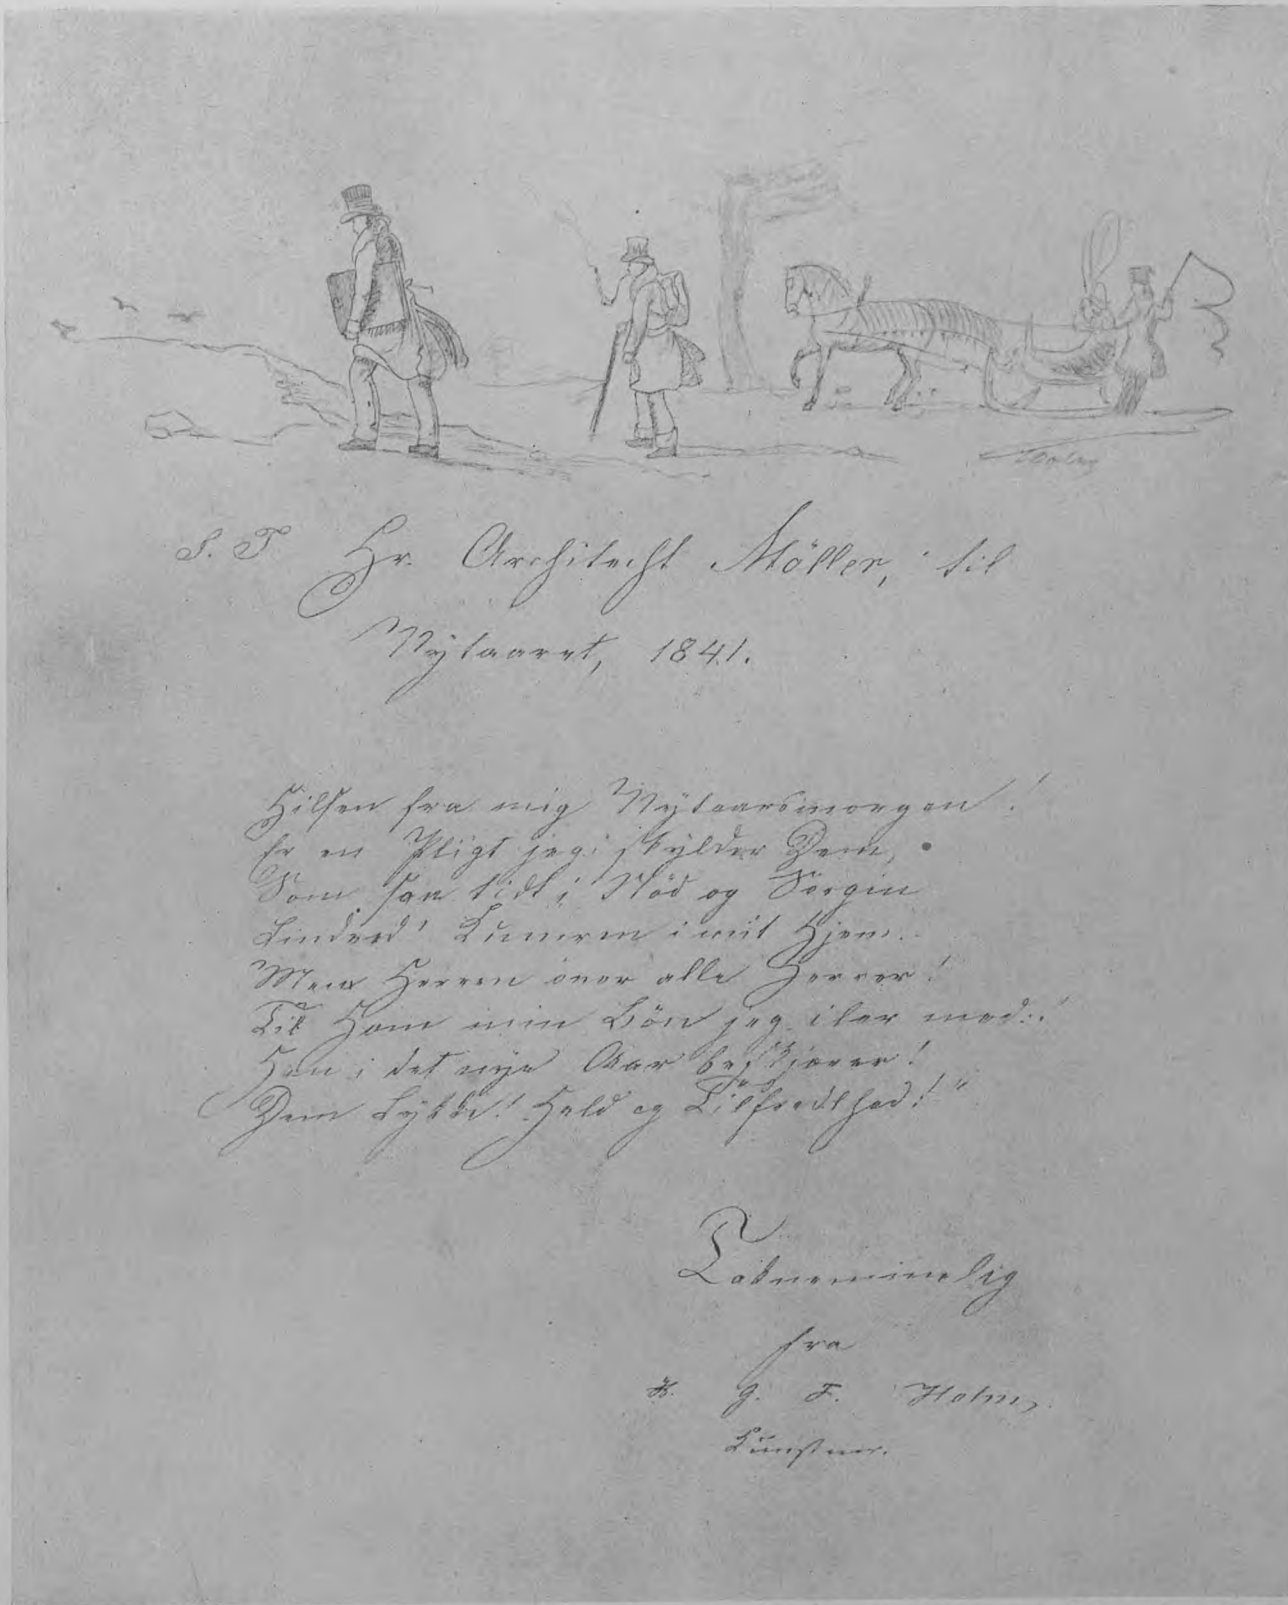 Holm
S. T. Hr. Architecht Möller, til
Nytaaret, 1841.
Hilsen fra mig Nytaarsmorgen!
Er en Pligt jeg skylder Dem,
Som saa tidt i Nöd og Sorgen
Lindred' Kummren i mit Hjem.
Men Herren över alle Herrer!
Til Ham min Bön jeg iler med:!
Han i det nye Aar beskjærer!
Dem Lykke! Held og Tilfredshed!"
Taknemmelig
fra
H. G. F. Holm,
Kunstner.